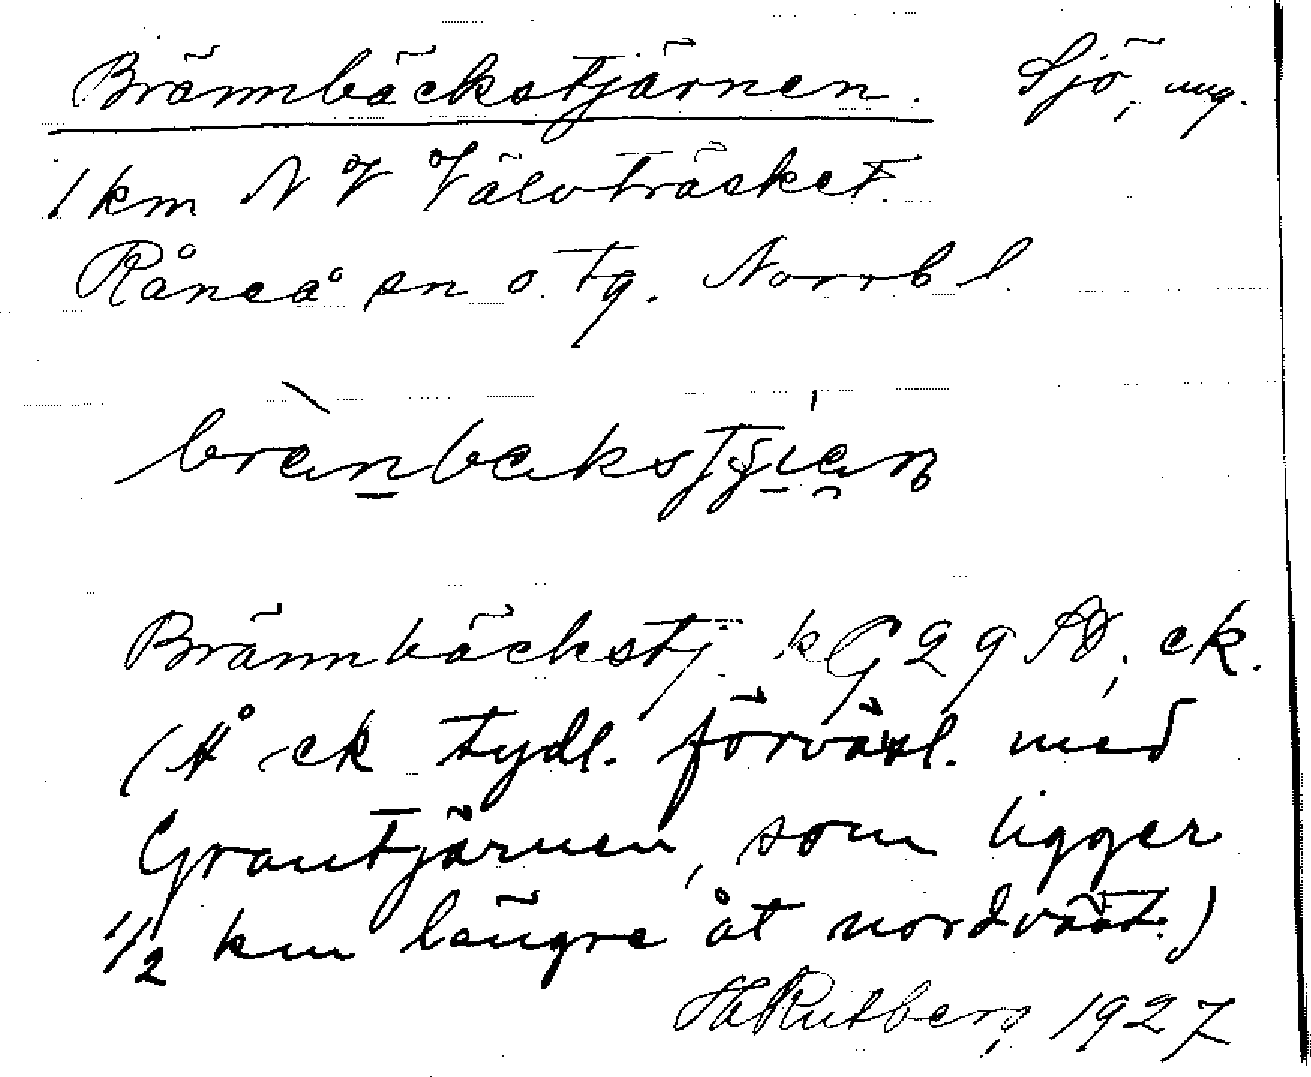 Brännbäckstjärnen. Sjö, ung.
1 km N V Välvträsket.
Råneå sn o. tg. Norrb l.
Brännbäckstj. k G 29 SO, ek.
(Å ek tydl. förväxl. med
Grantjärnen, som ligger
1/2 km längre åt nordväst.)
H Rutberg 1927